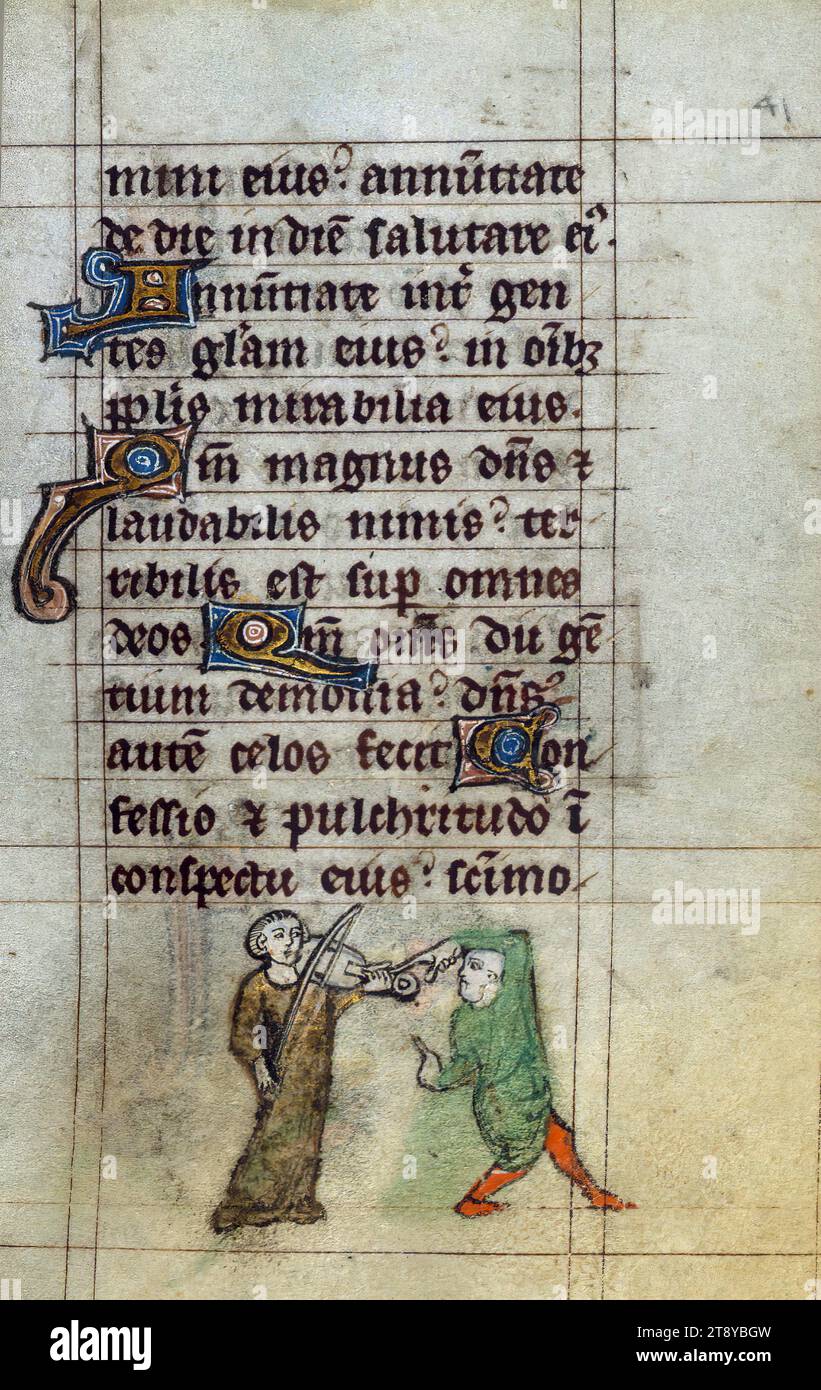 41
mini eius? annūtiate
de die in diē salutare ei⁹.
Annūtiate int̄ gen
tes gl̄am eius? in oīb3
ppl̄is mirabilia eius.
Qm̄ magnus dn̄s ⁊
laudabilis nimis? ter
ribilis est sup omnes
deos. Qm̄ om̄s dii gē
tium demonia? dn̄s
autē celos fecit Con
fessio ⁊ pulchritudo ī
conspectu eius? sc̄imo
alamy
Image ID: 2T8YBGW
www.alamy.com